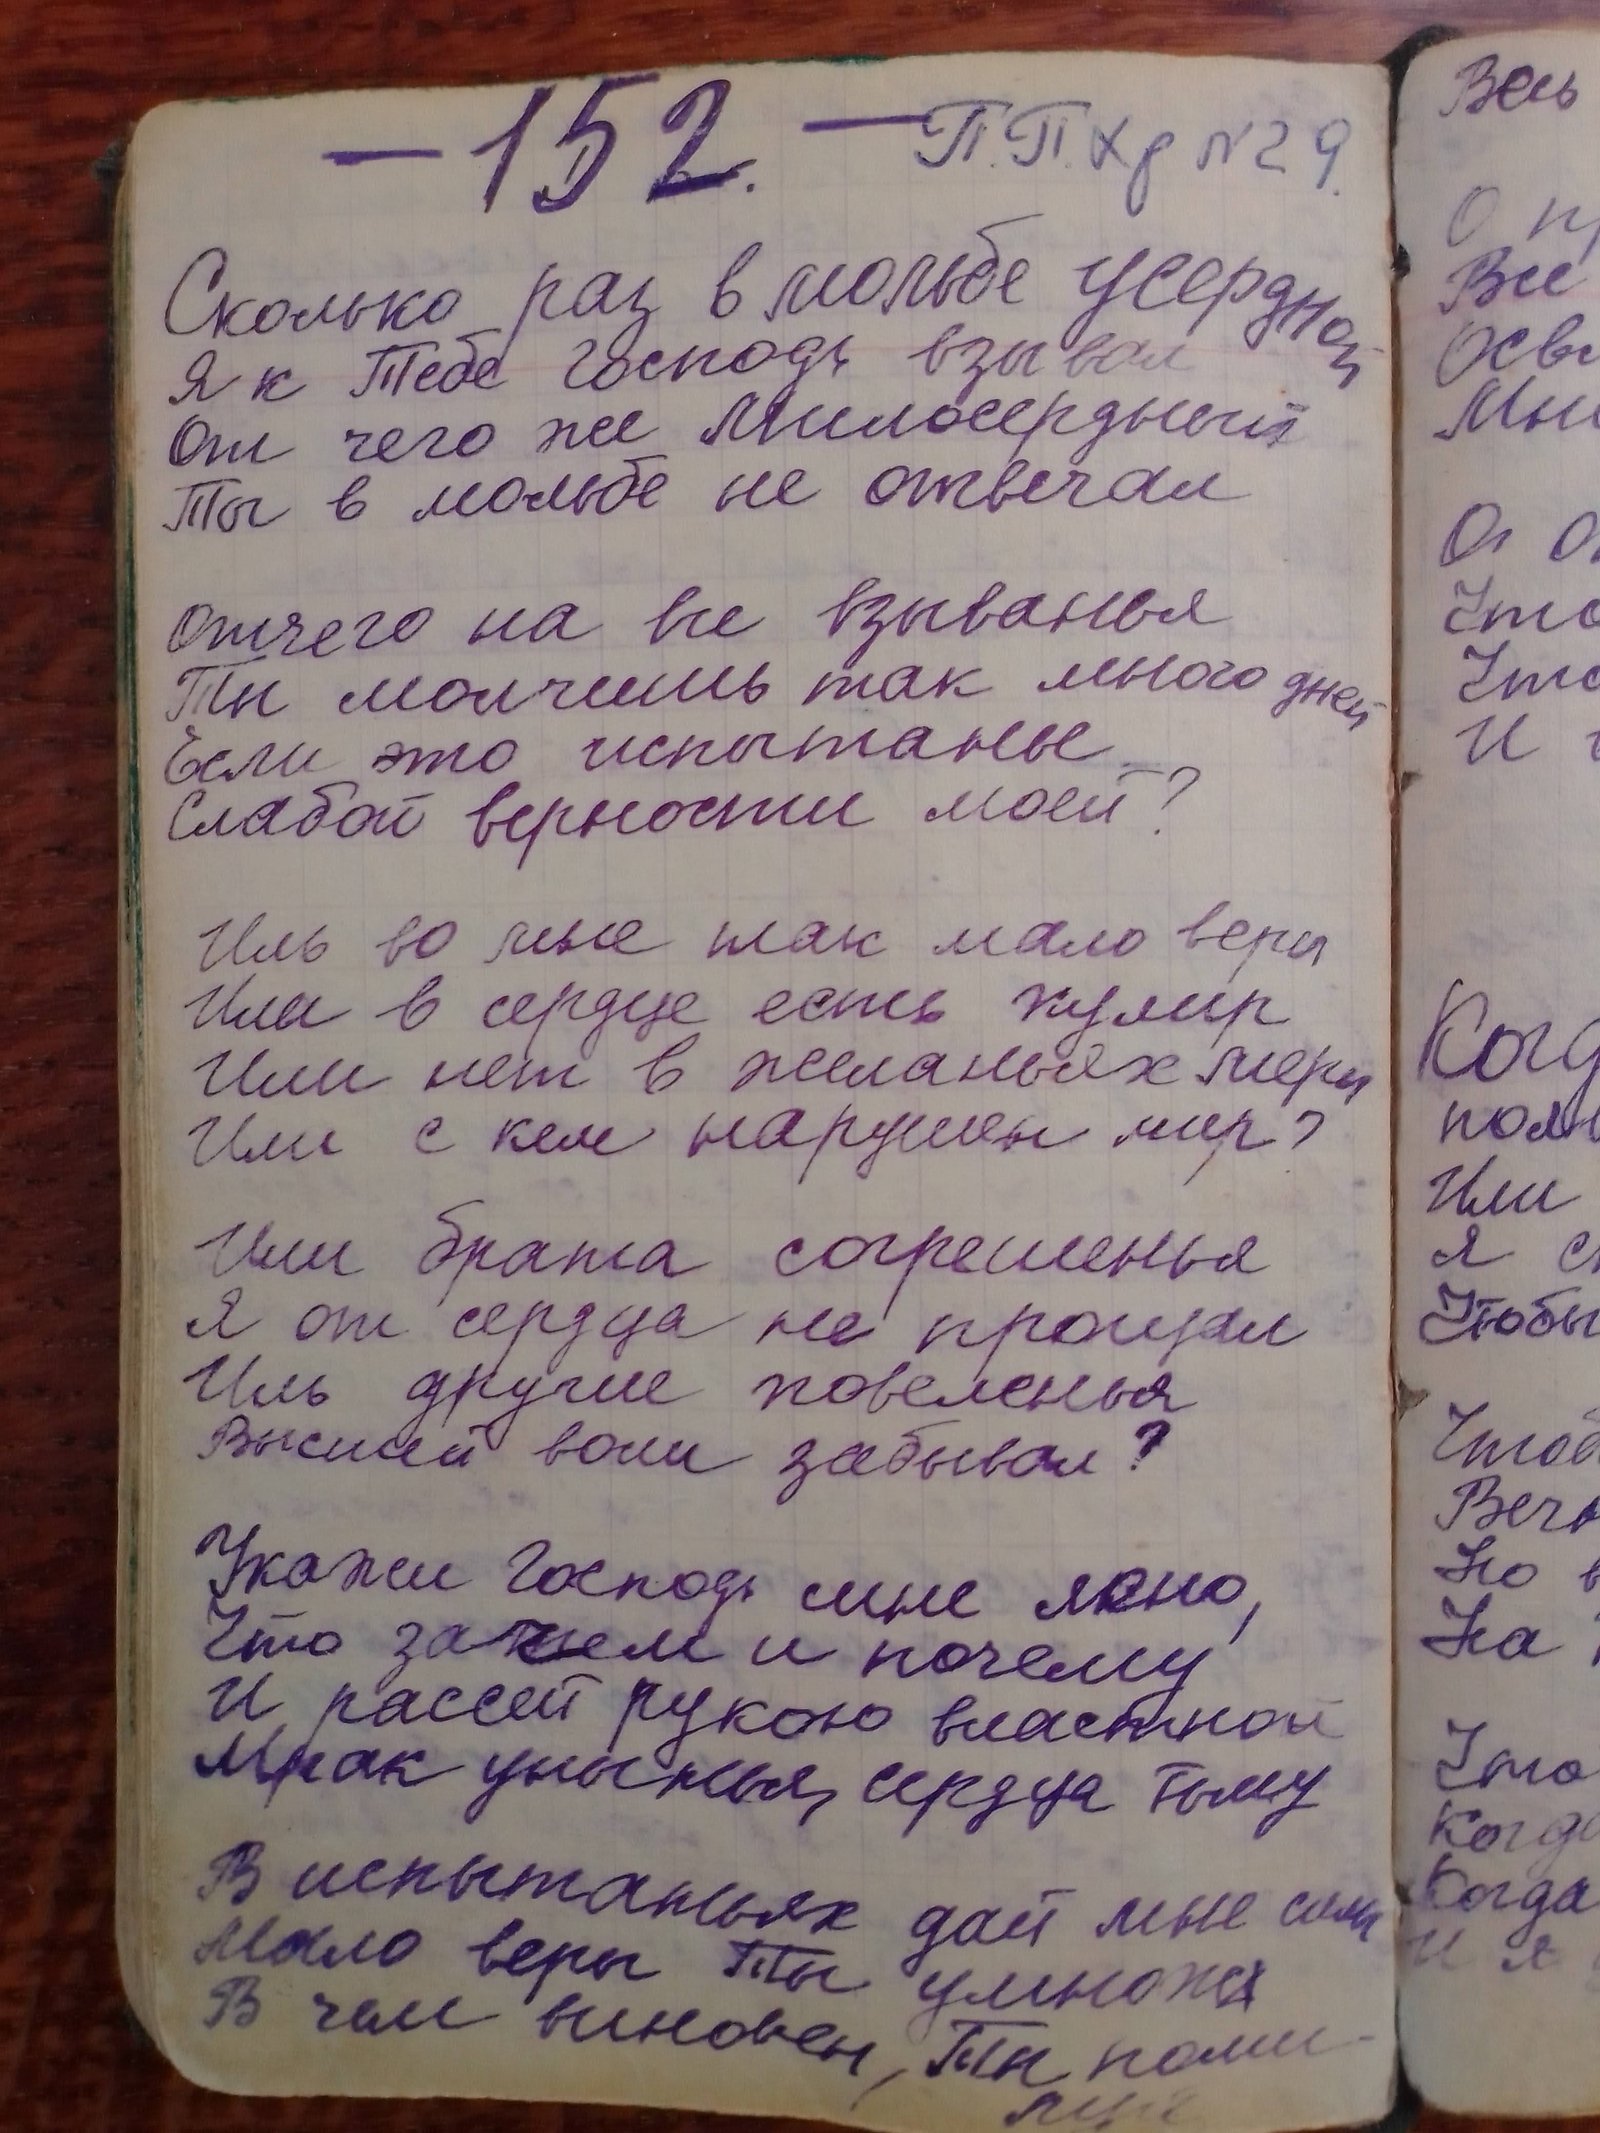 — 152. — П.П.Хр №29.
Сколько раз в мольбе усердной
Я к Тебе Господь взывал
От чего же Милосердный
Ты в мольбе не отвечал
Отчего на все взыванья
Ты молчишь так много дней
Если это испытанье
Слабой верности моей?
Иль во мне так мало веры
Или в сердце есть кумир
Или нет в желаньях меры
Или с кем нарушен мир?
Или брата согрешенья
Я от сердца не прощал
Иль другие повеленья
Высшей воли забывал?
Укажи Господь мне ясно,
Что зачем и почему
И рассей рукою властной
Мрак унынья, сердца тьму
В испытаньях дай мне силы
Мало веры Ты умножь
В чем виновен, Ты поми-
Весь
О пр
Все
Осве
Мни
Что
И
Когд
полн
Или
Я с
Чтобы
Чтоб
Вечн
Но в
На
Что
Когда
Когда
И я